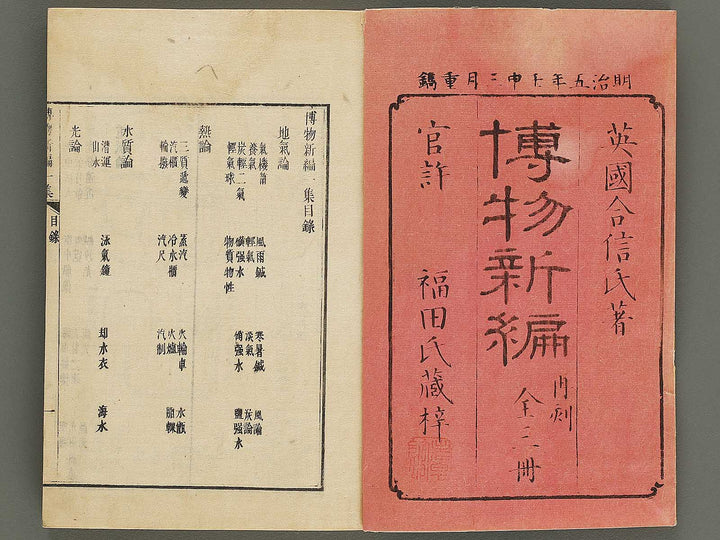 明治五年壬申二月重鐫
英國合信氏著
博物新編
内刻
全三冊
官許
福田氏藏梓
博物新編一集目錄
地氣論
氣機筩 風雨鍼 寒暑鍼 風論
養氣 輕氣 淡氣 炭論
炭輕二氣 磺强水 硝强水 鹽强水
輕氣球 物質物性
熱論
三質遞變 蒸汽 火輪車 水甑
汽櫃 冷水櫃 火爐 胎輠
輪撥 汽尺 汽制
水質論
潛運 泳氣鐘 却水衣 海水
山水
光論
博物新編一集
目錄
一